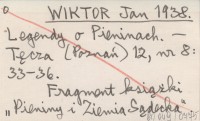 WIKTOR Jan 1938.
Legendy o Pieninach. -
Tęcza (Poznań) 12, nr 8:
33-36.
Fragment książki
„Pieniny i Ziemia Sądecka"